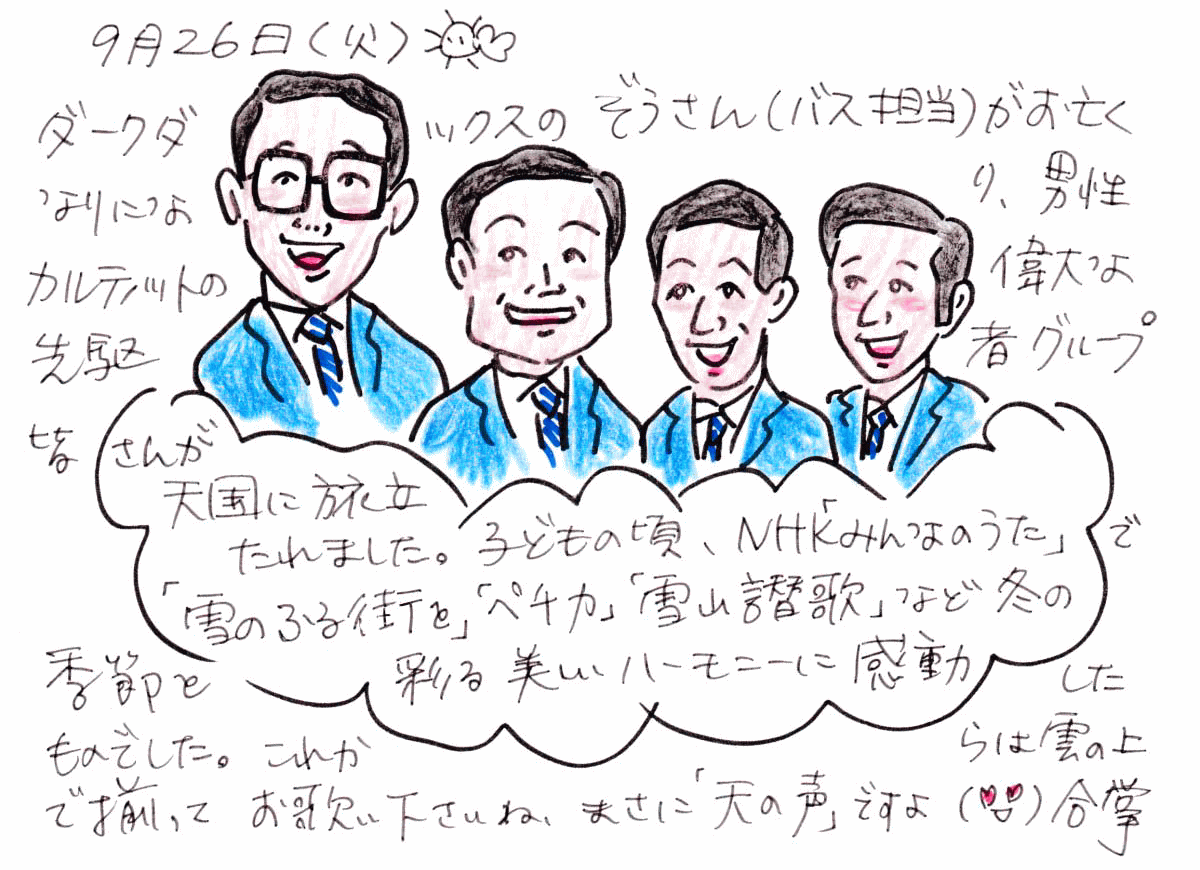 9月26日(火)
ダークダックスの ぞうさん(バス担当)がお亡く
なりにな り、男性
カルテットの 偉大な
先駆 者グループ
皆さんが
天国に旅立
たれました。子どもの頃、NHK「みんなのうた」で
「雪のふる街を」「ペチカ」「雪山讃歌」など冬の
季節を 彩る美しいハーモニーに感動 した
ものでした。これか らは雲の上
で揃って お歌い下さいね、まさに「天の声」ですよ ( )合掌